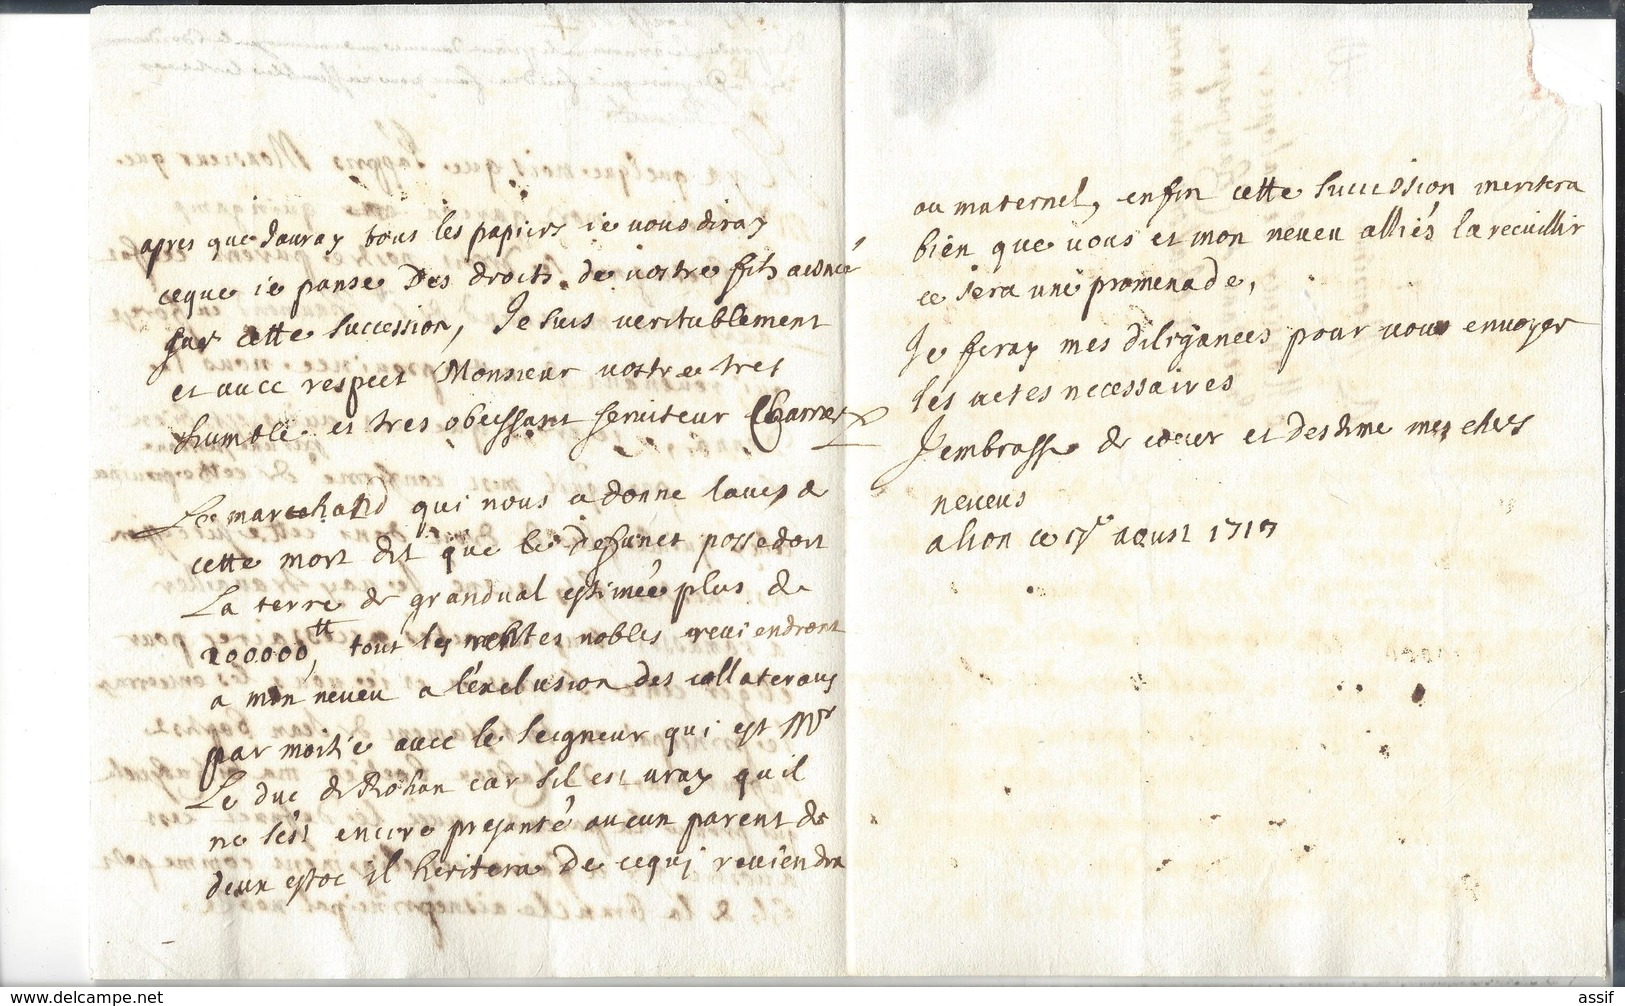 apres que Jauray tous les papiers ie vous diray
ceque ie panse Des droits de vostre fils aisné
sur cette succession, Je suis veritablement
et avec respect Monsieur vostre tres
humble et tres obeissant serviteur
Le marchand qui nous a donne lavis de
cette mort dit que le Defunct possedoit
La terre de grandval estimée plus de
200000 tt, tout les rentes nobles reviendront
a mon neveu a lexclusion des collateraus
par moitié avec le seigneur qui est Mr
Le duc de Rohan car sil est vray quil
ne sést encore presanté aucun parent de
deux estoc il heritera De cequi reviendra
ou maternel, enfin cette succession meritera
bien que vous et mon neveu alliés la recuillir
ce sera une promenade,
Je feray mes diligances pour vous envoyer
les actes necessaires
Jembrasse de coeur et mes chers
neveus
ce aoust 1717
www.delcampe.net
assif